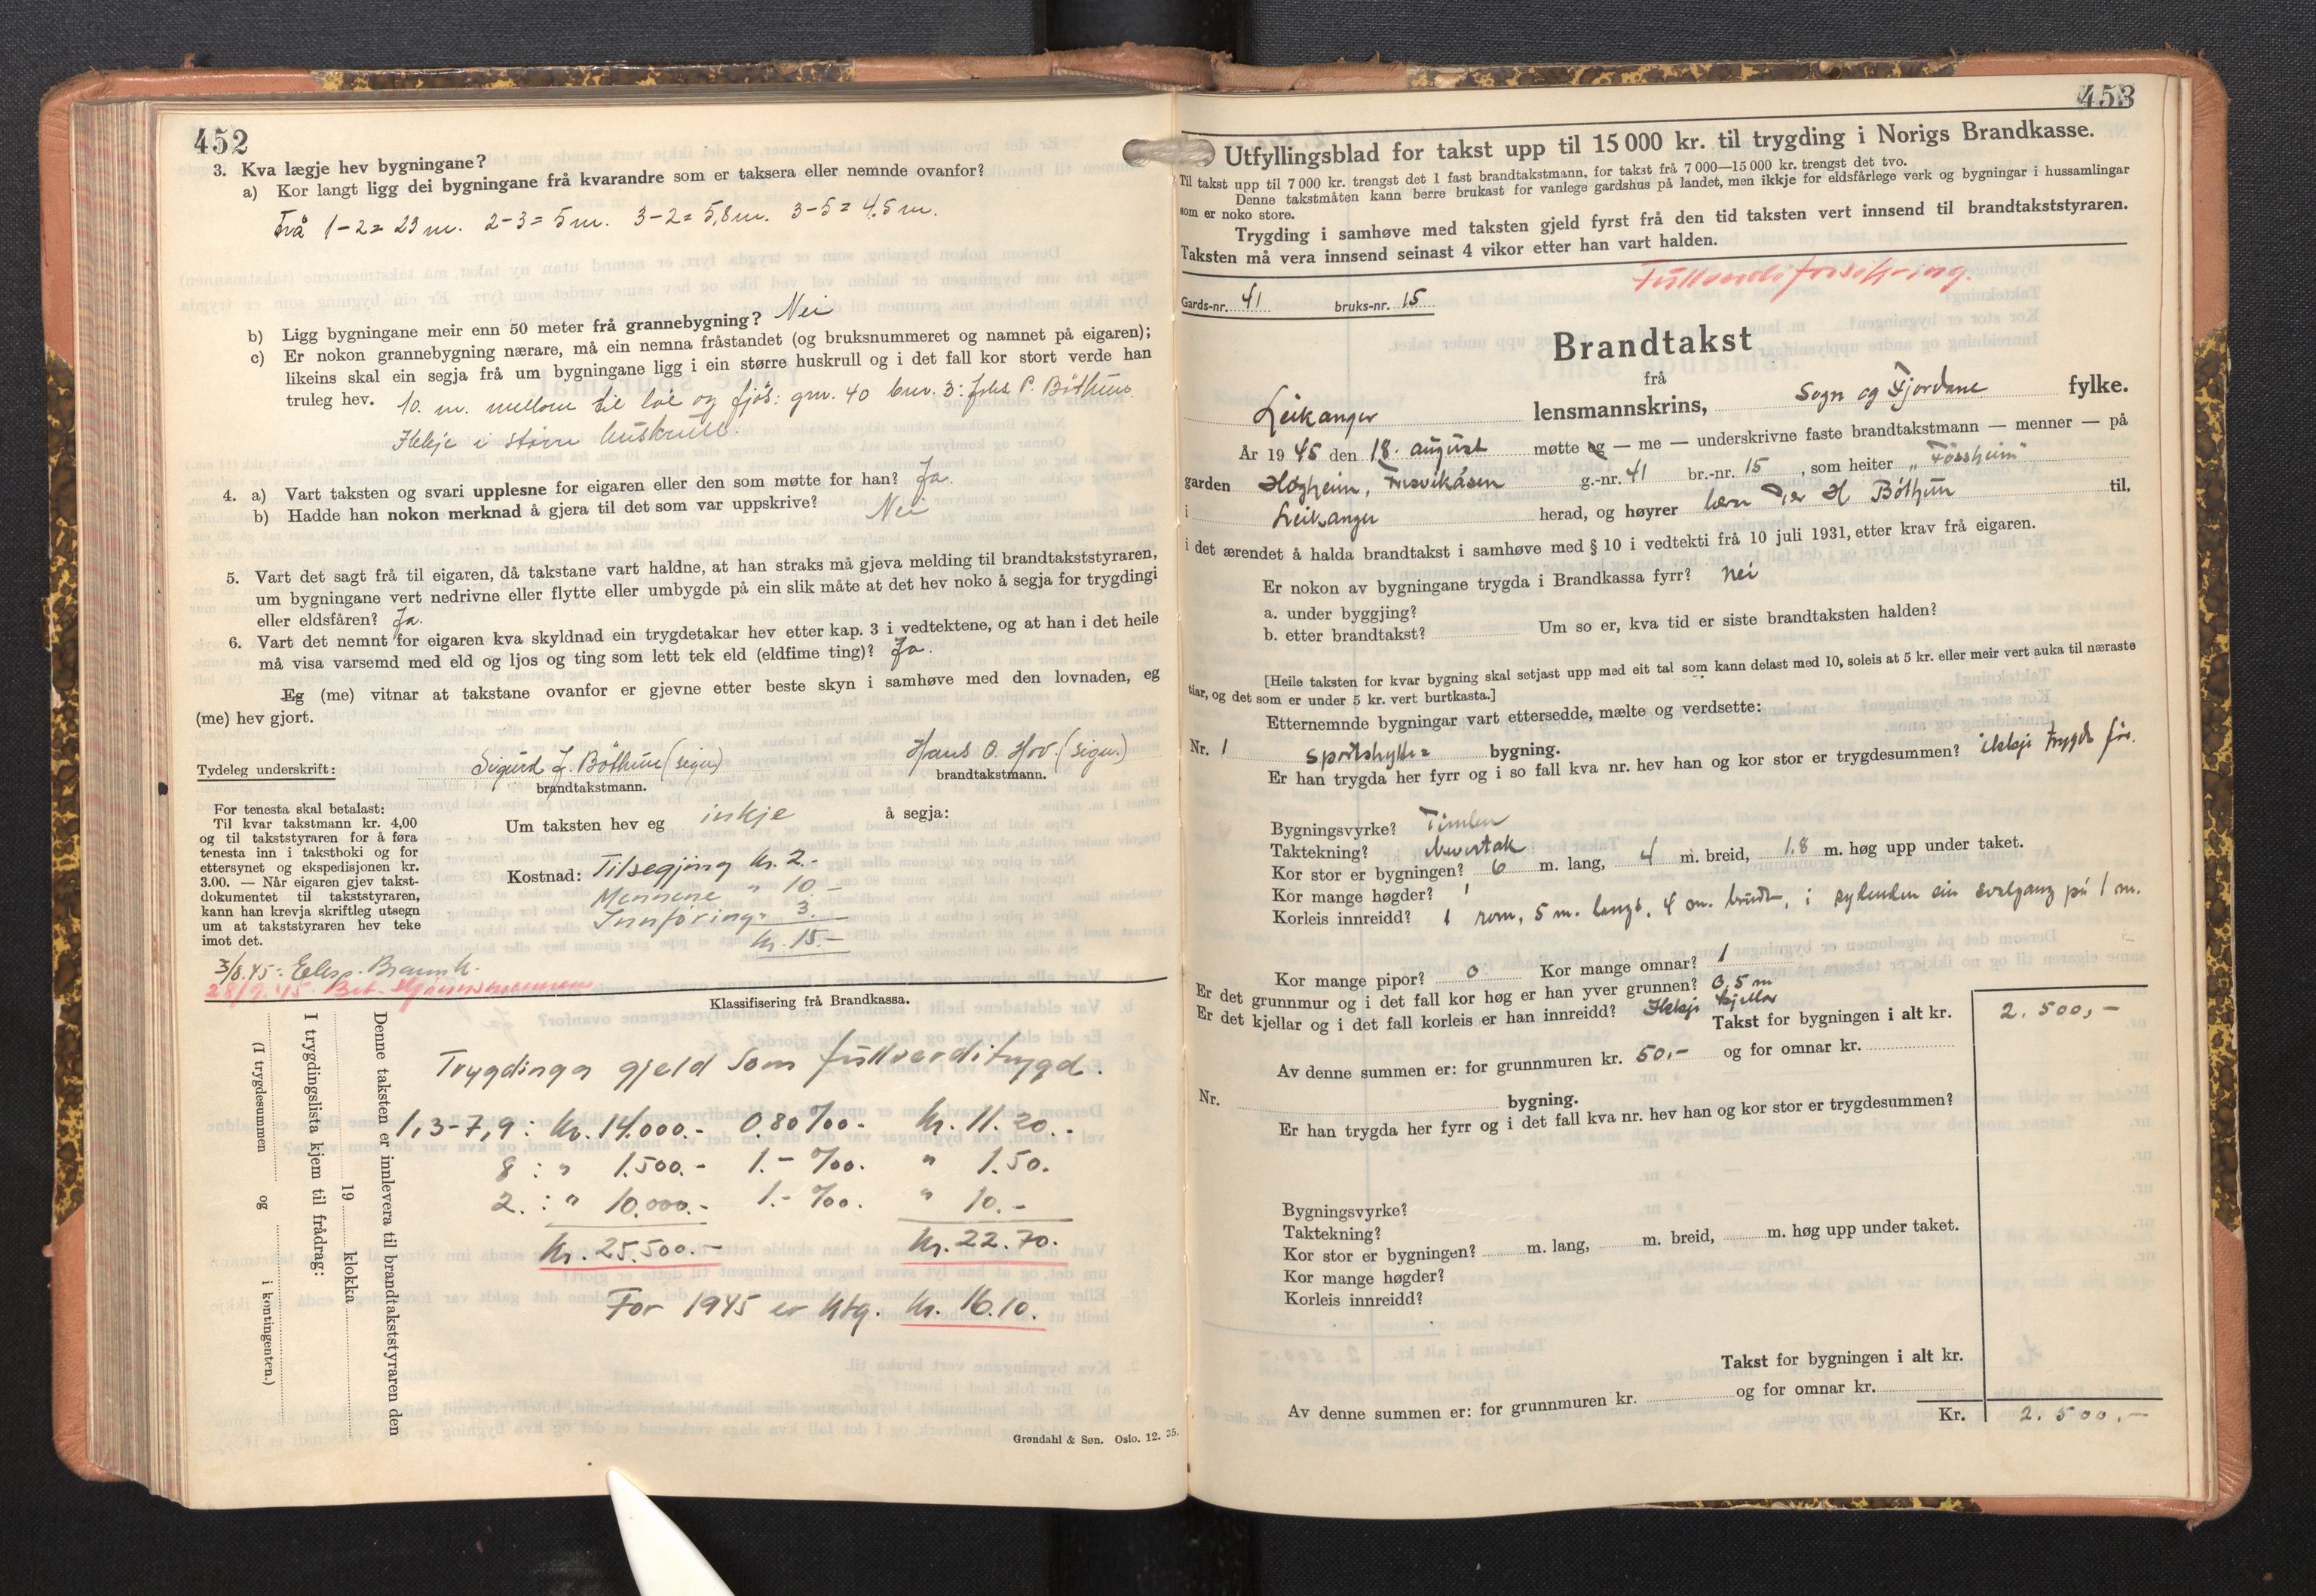 452
3. Kva lægje hev bygningane?
a) Kor langt ligg dei bygningane frå kvarandre som er taksera eller nemnde ovanfor?
Frå 1-2= 23 m. 2-3= 5 m. 3-2= 5,8 m. 3-5= 4,5 m.
b) Ligg bygningane meir enn 50 meter frå grannebygning? Nei
c) Er nokon grannebygning nærare, må ein nemna fråstandet (og bruksnummeret og namnet på eigaren);
likeins skal ein segja frå um bygningane ligg i ein større huskrull og i det fall kor stort verde han
truleg hev. 10. m. mellom til løe og fjøs: gnr. 40 bnr. 3: Johs P. Bøthun.
Ikkje i større huskrull.
4. a) Vart taksten og svari upplesne for eigaren eller den som møtte for han? Ja.
b) Hadde han nokon merknad å gjera til det som var uppskrive? Nei
5. Vart det sagt frå til eigaren, då takstane vart haldne, at han straks må gjeva melding til brandtakststyraren,
um bygningane vert nedrivne eller flytte eller umbygde på ein slik måte at det hev noko å segja for trygdingi
eller eldsfåren? Ja.
6. Vart det nemnt for eigaren kva skyldnad ein trygdetakar hev etter kap. 3 i vedtektene, og at han i det heile
må visa varsemd med eld og ljos og ting som lett tek eld (eldfime ting)? Ja.
Eg (me) vitnar at takstane ovanfor er gjevne etter beste skyn i samhøve med den lovnaden, eg
(me) hev gjort.
Tydeleg underskrift: Sigurd J. Bøthun (sign) Hans O. Hov. (sign.)
brandtakstmann. brandtakstmann.
For tenesta skal betalast:
Til kvar takstmann kr. 4,00
og til takststyraren for å føra
tenesta inn i takstboki og for
ettersynet og ekspedisjonen kr.
3.00. — Når eigaren gjev takst-
dokumentet til takststyraren,
kann han krevja skriftleg utsegn
um at takststyraren hev teke
imot det.
Um taksten hev eg inkje å segja:
Kostnad: Tilsegjing kr. 2.-
Mennene " 10 -
Innføring " 3.
kr. 15.-
3/8.45: Eksp. Brannk.
28/9.45. Bet.
Klassifisering frå Brandkassa.
Trygdinga gjeld som fullverditrygd.
1,3-7,9: kr. 14.000.- 0.80 ‰. kr. 11.20.-
8: " 1.500.- 1.- ‰. " 1.50.
2.: " 10.000.- 1.- ‰. " 10.-
kr. 25.500.- kr. 22.70.
For 1945 er ktg. kr. 16.10.
Denne taksten er innlevera til brandtakststyraren den
19 klokka
I trygdingslista kjem til frådrag:
(I trygdesummen og i kontingenten.)
Grøndahl & Søn. Oslo. 12. 35.
453
Utfyllingsblad for takst upp til 15 000 kr. til trygding i Norigs Brandkasse.
Til takst upp til 7 000 kr. trengst det 1 fast brandtakstmann, for takst frå 7 000—15 000 kr. trengst det tvo.
Denne takstmåten kann berre brukast for vanlege gardshus på landet, men ikkje for eldsfårlege verk og bygningar i hussamlingar
som er noko store.
Trygding i samhøve med taksten gjeld fyrst frå den tid taksten vert innsend til brandtakststyraren.
Taksten må vera innsend seinast 4 vikor etter han vart halden.
Fullverdiforsikring.
Gards-nr. 41 bruks-nr. 15
Brandtakst
frå
Leikanger lensmannskrins, Sogn og Fjordane fylke.
År 1945 den 18. august møtte eg — me — underskrivne faste brandtakstmann — menner — på
garden Høgheim, g.-nr. 41 br.-nr. 15, som heiter "Fossheim"
i Leikanger herad, og høyrer Per H Bøthun til,
i det ærendet å halda brandtakst i samhøve med § 10 i vedtekti frå 10 juli 1931, etter krav frå eigaren.
Er nokon av bygningane trygda i Brandkassa fyrr? nei
a. under byggjing?
b. etter brandtakst? Um so er, kva tid er siste brandtaksten halden?
[Heile taksten for kvar bygning skal setjast upp med eit tal som kann delast med 10, soleis at 5 kr. eller meir vert auka til næraste
tiar, og det som er under 5 kr. vert burtkasta.]
Etternemnde bygningar vart ettersedde, mælte og verdsette:
Nr. 1 sportshytte bygning.
Er han trygda her fyrr og i so fall kva nr. hev han og kor stor er trygdesummen? ikkje trygda før.
Bygningsvyrke? Timber
Taktekning? nevertak
Kor stor er bygningen? 6 m. lang, 4 m. breid, 1.8 m. høg upp under taket.
Kor mange høgder? 1
Korleis innreidd? 1 rom, 5 m. langt, 4 m. breidt, i sydenden ein svalgang på 1 m.
Kor mange pipor? 0 Kor mange omnar? 1
Er det grunnmur og i det fall kor høg er han yver grunnen? 0,5 m
Er det kjellar og i det fall korleis er han innreidd? Ikkje kjellar
Takst for bygningen i alt kr. 2.500,-
Av denne summen er: for grunnmuren kr. 50.- og for omnar kr.
Nr. bygning.
Er han trygda her fyrr og i det fall kva nr. hev han og kor stor er trygdesummen?
Bygningsvyrke?
Taktekning?
Kor stor er bygningen? m. lang, m. breid, m. høg upp under taket.
Kor mange høgder?
Korleis innreidd?
Takst for bygningen i alt kr.
Av denne summen er: for grunnmuren kr. og for omnar kr.
Kr. 2.500.-